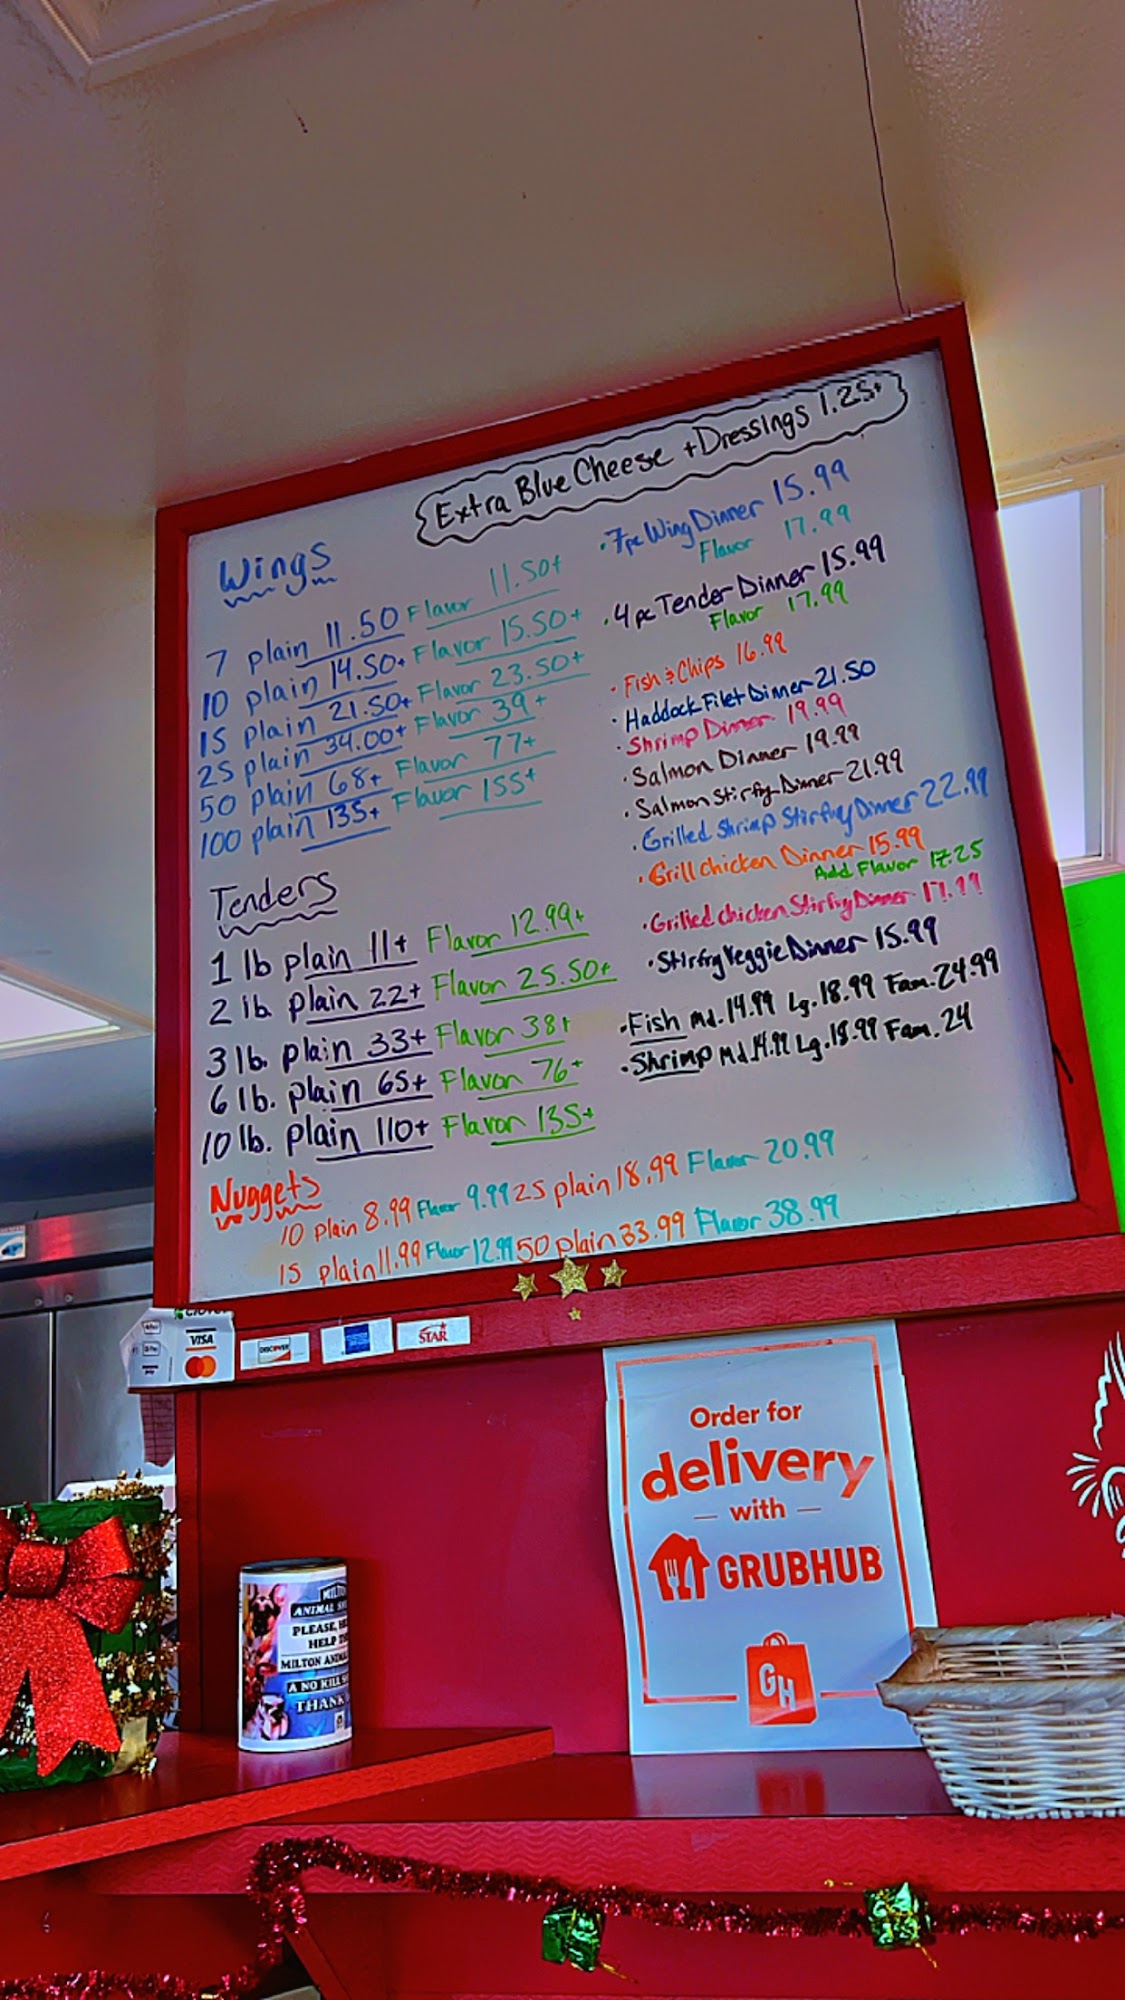 {Extra Blue Cheese + Dressings 1.25+}
Wings
7 plain 11.50 Flavor 11.50+
10 plain 14.50+ Flavor 15.50+
15 plain 21.50+ Flavor 23.50+
25 plain 34.00+ Flavor 39+
50 plain 68+ Flavor 77+
100 plain 135+ Flavor 155+
Tenders
1 lb plain 11+ Flavor 12.99+
2 lb. plain 22+ Flavor 25.50+
3 lb. plain 33+ Flavor 38+
6 lb. plain 65+ Flavor 76+
10 lb. plain 110+ Flavor 135+
Nuggets
10 Plain 8.99 Flavor 9.99 25 plain 18.99 Flavor 20.99
15 plain 11.99 Flavor 12.99 50 plain 33.99 Flavor 38.99
· 7pc Wing Dinner 15.99
Flavor 17.99
· 4 pc Tender Dinner 15.99
Flavor 17.99
· Fish & Chips 16.99
· Haddock Filet Dinner 21.50
· Shrimp Dinner 19.99
· Salmon Dinner 19.99
· Salmon Stirfry Dinner 21.99
· Grilled Shrimp Stirfry Dinner 22.99
· Grill chicken Dinner 15.99
Add Flavor 17.25
· Grilled chicken Stirfry Dinner 17.99
· Stirfry Veggie Dinner 15.99
· Fish Md. 14.99 Lg. 18.99 Fam. 24.99
· Shrimp Md. 14.99 Lg. 18.99 Fam. 24
VISA
DISCOVER
STAR
Order for
delivery
— with —
GRUBHUB
GH
ANIMAL
PLEASE,
HELP
MILTON
A NO KILL
THANK